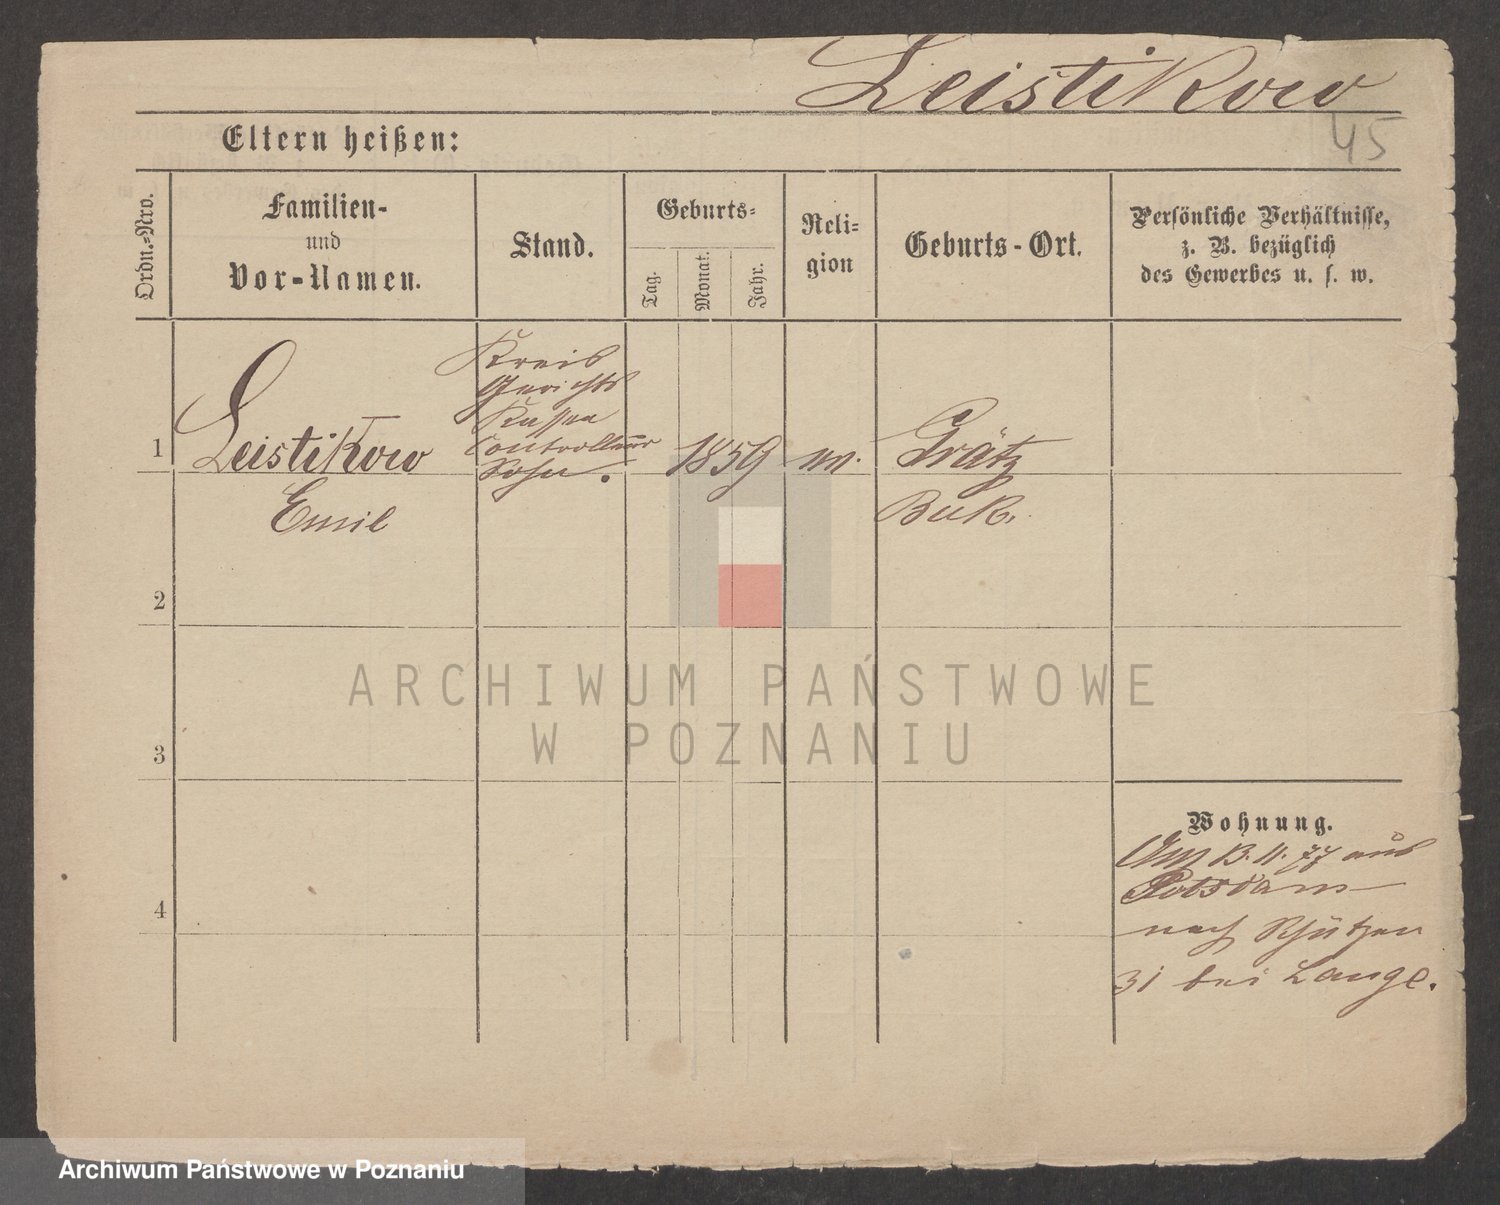 Leistikow
45
Eltern heißen:
Ordn.-Nro.
Familien-
und
Vor-Namen.
Stand.
Geburts-
Tag.
Monat.
Jahr.
Reli-
gion
Geburts-Ort.
Persönliche Verhältnisse,
z. B. bezüglich
des Gewerbes u. s. w.
1
Leistikow
Emil
Kreis
Gerichts
Kassen
Controlleur
Sohn.
1859
Grätz
Buk.
2
3
4
Wohnung.
Am 13.11.77 aus
Potsdam
nach Schützen
31 bei Lange.
ARCHIWUM PAŃSTWOWE
W POZNANIU
Archiwum Państwowe w Poznaniu